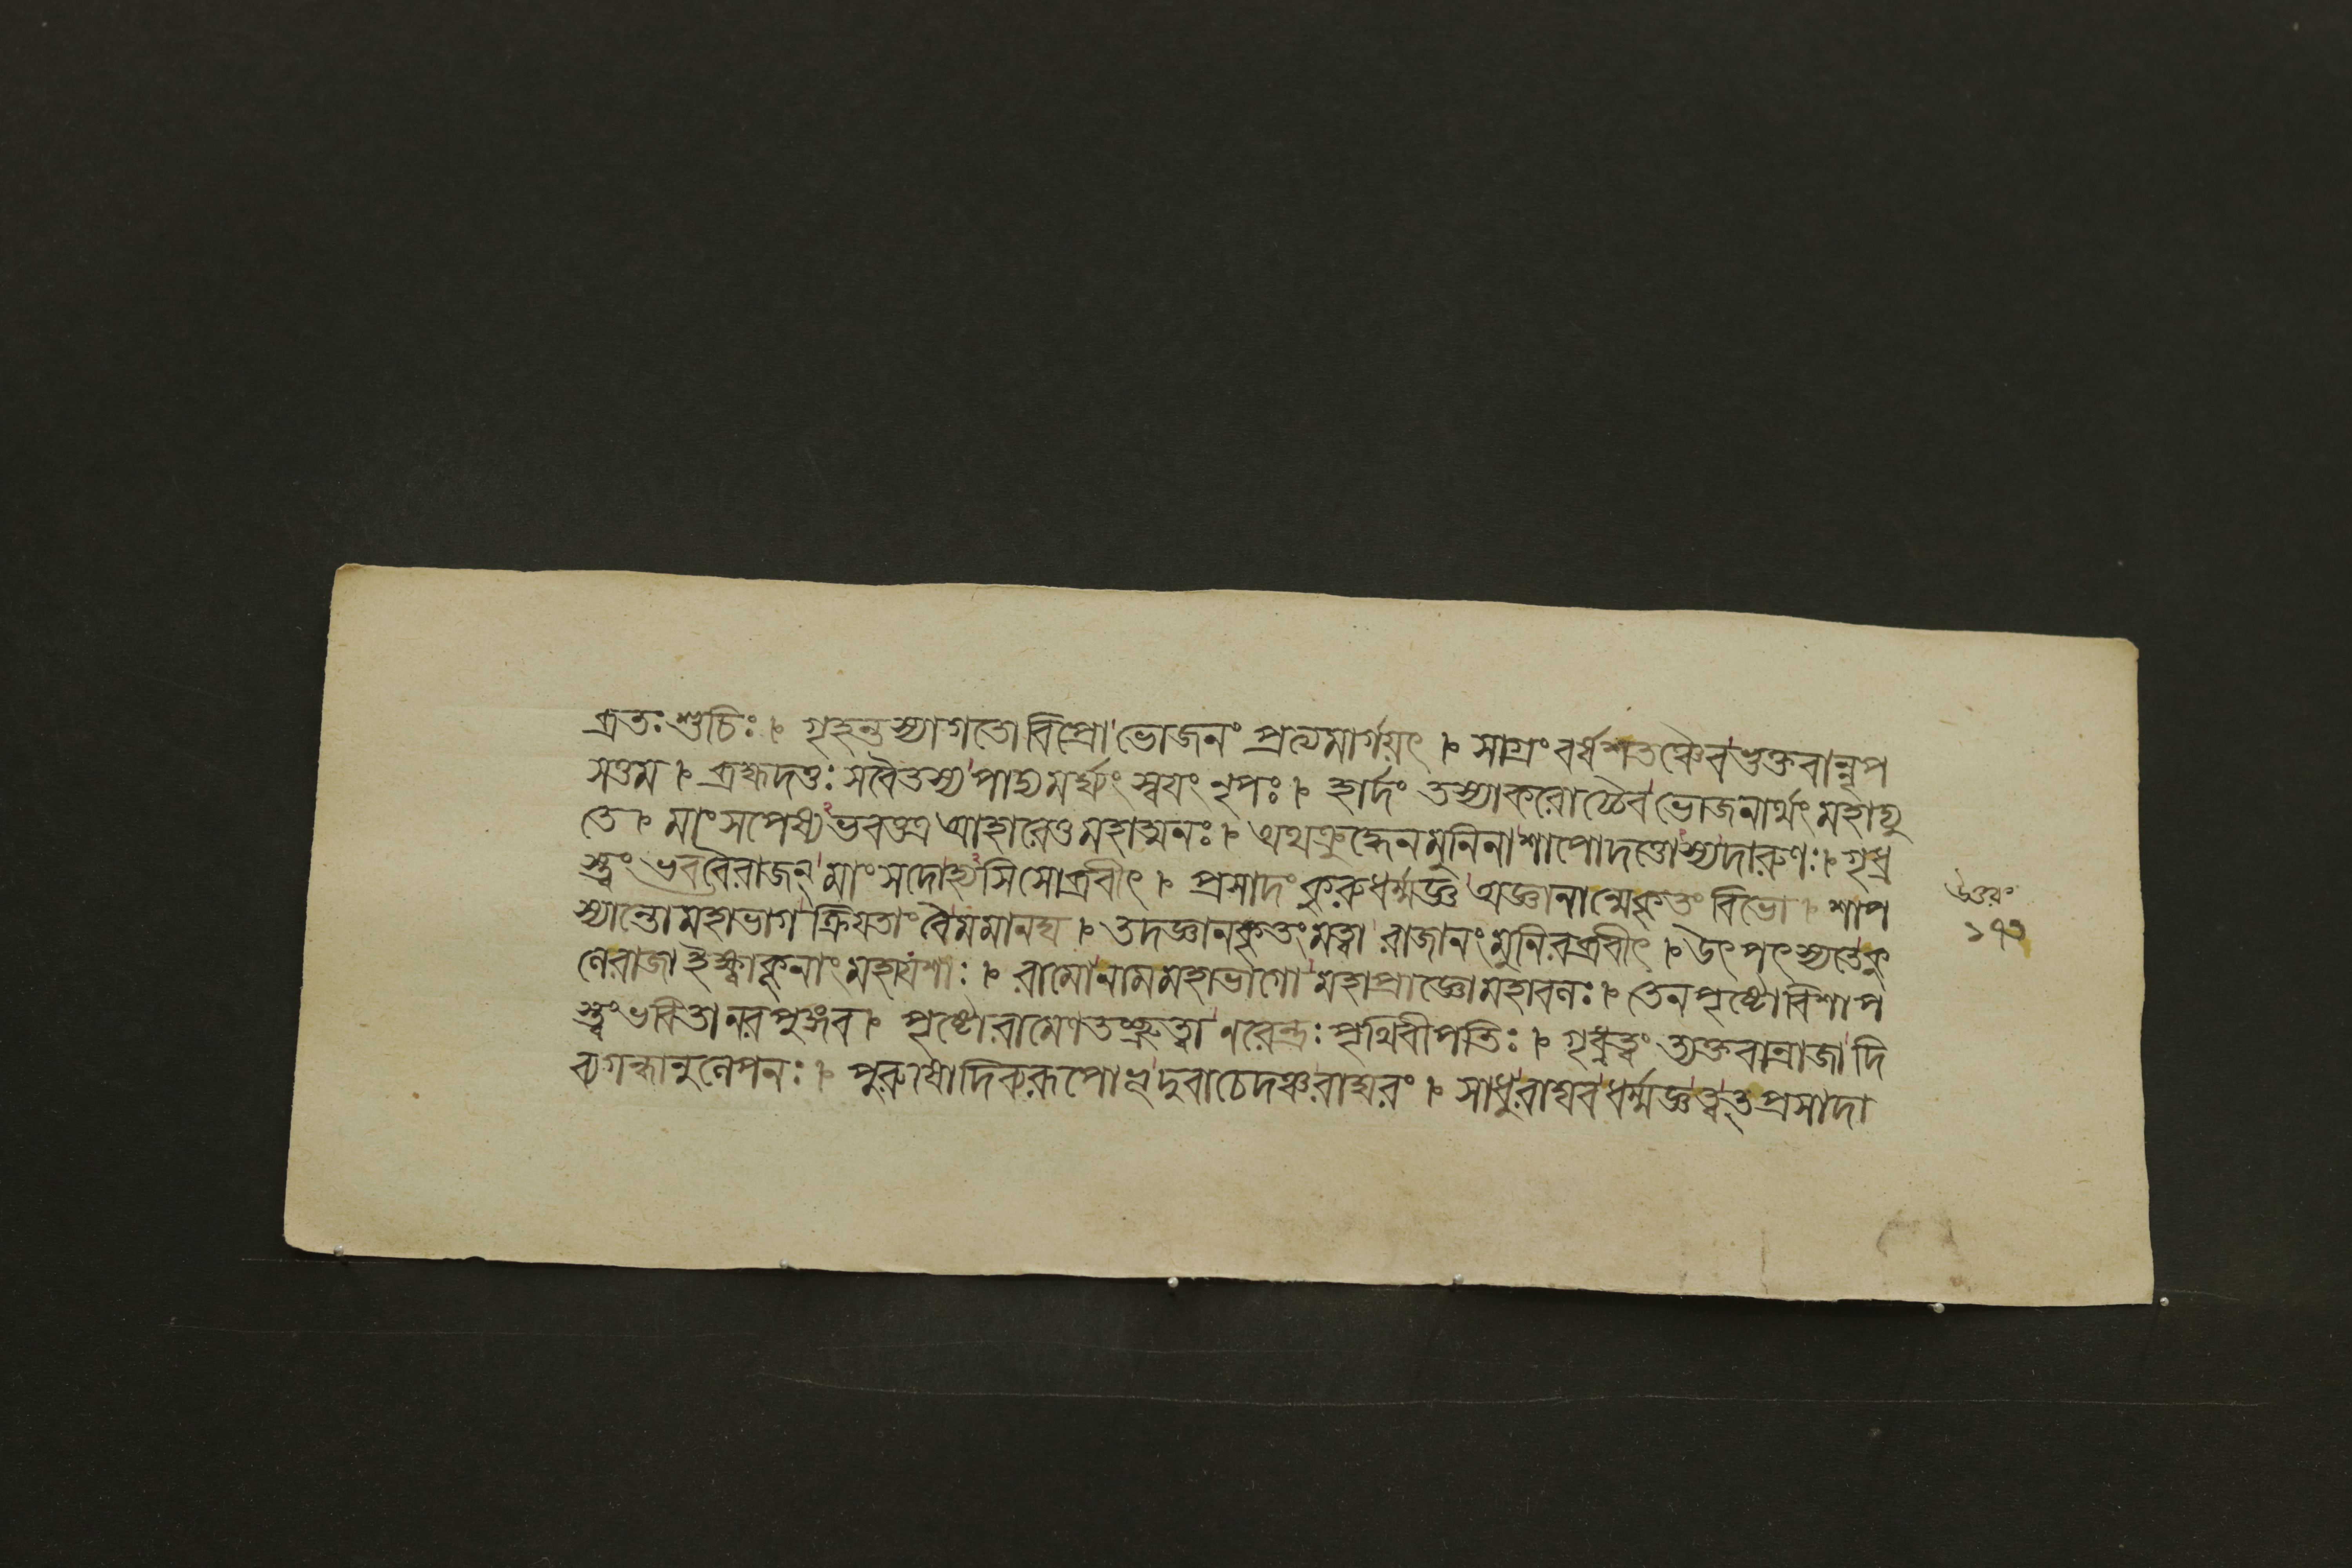 ব্রতঃ শুচিঃ । গৃহন্তস্যাগতো বিপ্রো ভোজনং প্রত্যমার্গয়ৎ । সাগ্রং বর্ষশতঞ্চৈব ভুক্তবান্নৃপ
সত্তম । ব্রহ্মদত্তঃ সবৈতস্য পাদ্যমর্ঘ্যং স্বয়ং নৃপঃ । হার্দং তস্যাকরোচ্চৈব ভোজনার্থং মহাদ্যু
তে । মাংসপেষ্য ভবত্তত্র আহারেতু মহাত্মনঃ । অথ ক্রুদ্ধেন মুনিনা শাপো দত্তোস্য দারুণঃ । গৃধ্র
স্ত্বং ভব বৈ রাজন্ মাংসদোহ্যসি সোব্রবীৎ । প্রসাদং কুরু ধর্ম্মজ্ঞ অজ্ঞানান্মেকৃতং বিভো । শাপ
স্যান্তো মহাভাগ ক্রিয়তাং বৈ মমানঘ । তদজ্ঞানকৃতং মত্বা রাজানং মুনিরব্রবীৎ । উৎপৎস্যতে কু
লে রাজা ইক্ষ্বাকূনাং মহাযশাঃ । রামো নাম মহাভাগো মহাপ্রাজ্ঞো মহাবলঃ । তেন পৃষ্টো বিশাপ
স্ত্বং ভবিতা নরপুঙ্গব । পৃষ্টো রামেণ তচ্ছ্রুত্বা নরেন্দ্রঃ পৃথিবীপতিঃ । গৃধ্রত্বং ত্যক্তবান্রাজা দি
ব্যগন্ধানুলেপনঃ । পুরুষো দিব্যরূপোভূদুবাচেদঞ্চ রাঘবং । সাধু রাঘব ধর্ম্মজ্ঞ ত্বৎপ্রসাদা
উত্তরং
১৭৩